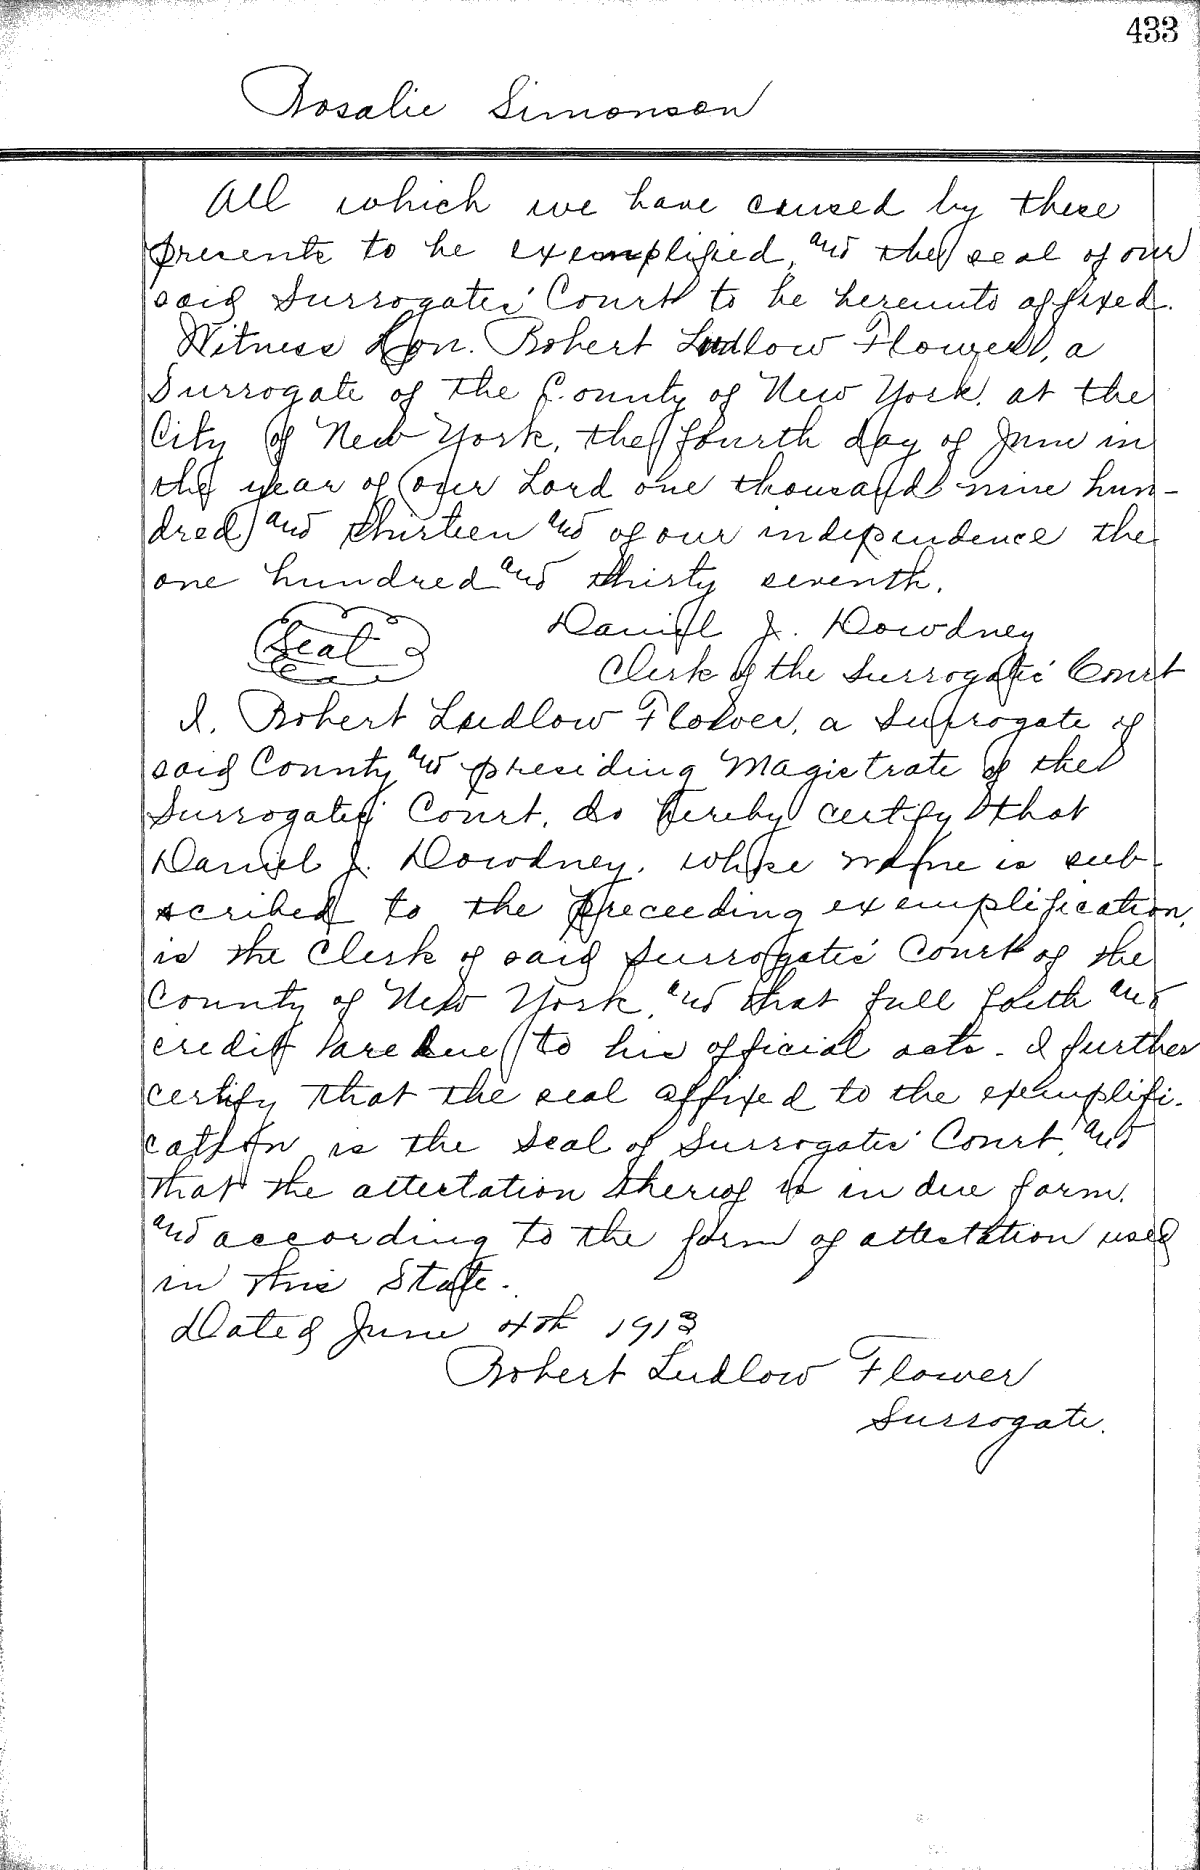 433
Rosalie Simonson
All which we have caused by these
presents to be exemplified, and the seal of our
said Surrogates' Court to be hereunto affixed.
Witness Hon. Robert Ludlow Flower, a
Surrogate of the County of New York, at the
City of New York, the fourth day of June in
the year of our Lord one thousand nine hun-
dred and thirteen and of our independence the
one hundred and thirty seventh.
Seal
Daniel J. Dowdney
Clerk of the Surrogates' Court
I, Robert Ludlow Flower, a Surrogate of
said County and presiding Magistrate of the
Surrogates' Court, do hereby certify that
Daniel J. Dowdney, whose name is sub-
scribed to the preceeding exemplification,
is the Clerk of said Surrogates' Court of the
County of New York, and that full faith and
credit are due to his official acts - I further
certify that the seal affixed to the exemplifi-
cation is the Seal of Surrogates' Court, and
that the attestation thereof is in due form.
and according to the form of attestation used
in this State.
Dated June 4th 1913
Robert Ludlow Flower
Surrogate.